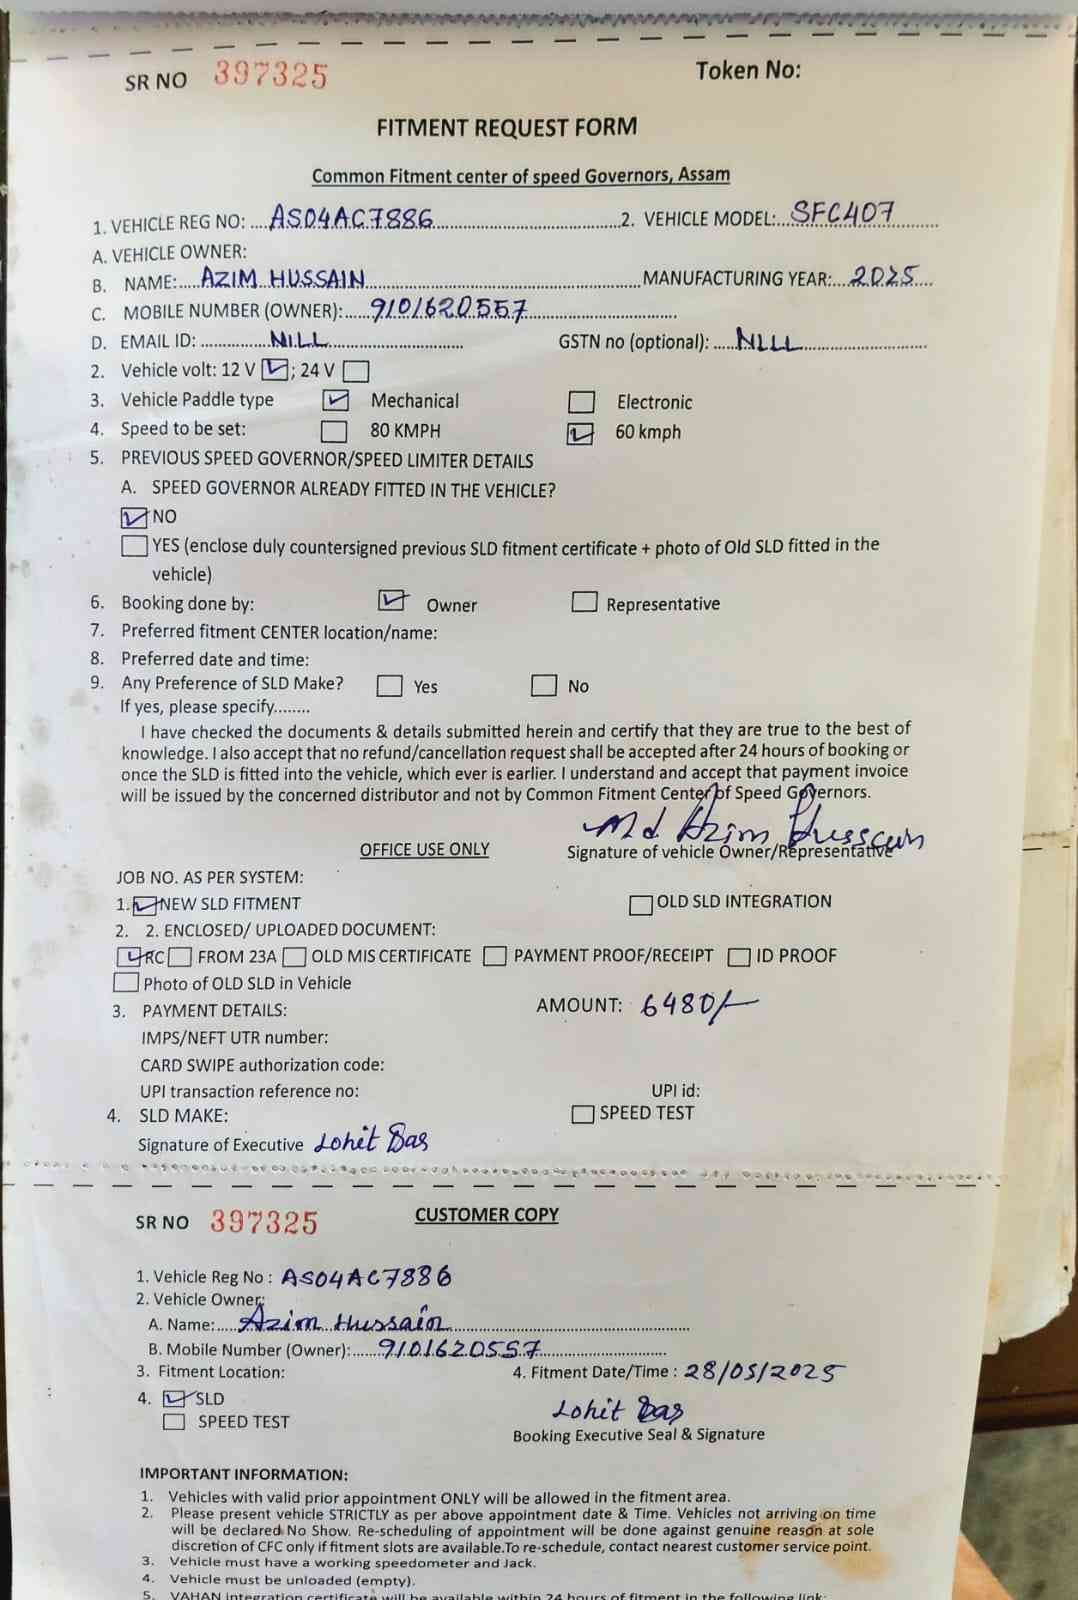 SR NO 397325 Token No:
FITMENT REQUEST FORM
Common Fitment center of speed Governors, Assam
1. VEHICLE REG NO: ....AS04AC7886....2. VEHICLE MODEL:...SFC407....
A. VEHICLE OWNER:
B. NAME:....AZIM HUSSAIN....MANUFACTURING YEAR:...2025....
C. MOBILE NUMBER (OWNER):.....9101620557....
D. EMAIL ID: ....NILL.... GSTN no (optional): .....NILL....
2. Vehicle volt: 12 V ☑; 24 V ☐
3. Vehicle Paddle type ☑ Mechanical ☐ Electronic
4. Speed to be set: ☐ 80 KMPH ☑ 60 kmph
5. PREVIOUS SPEED GOVERNOR/SPEED LIMITER DETAILS
A. SPEED GOVERNOR ALREADY FITTED IN THE VEHICLE?
☑ NO
☐ YES (enclose duly countersigned previous SLD fitment certificate + photo of Old SLD fitted in the
vehicle)
6. Booking done by: ☑ Owner ☐ Representative
7. Preferred fitment CENTER location/name:
8. Preferred date and time:
9. Any Preference of SLD Make? ☐ Yes ☐ No
If yes, please specify........
I have checked the documents & details submitted herein and certify that they are true to the best of
knowledge. I also accept that no refund/cancellation request shall be accepted after 24 hours of booking or
once the SLD is fitted into the vehicle, which ever is earlier. I understand and accept that payment invoice
will be issued by the concerned distributor and not by Common Fitment Center of Speed Governors.
Md Azim Hussain
OFFICE USE ONLY Signature of vehicle Owner/Representative
JOB NO. AS PER SYSTEM:
1. ☑ NEW SLD FITMENT ☐ OLD SLD INTEGRATION
2. 2. ENCLOSED/ UPLOADED DOCUMENT:
☑ RC ☐ FROM 23A ☐ OLD MIS CERTIFICATE ☐ PAYMENT PROOF/RECEIPT ☐ ID PROOF
☐ Photo of OLD SLD in Vehicle
3. PAYMENT DETAILS: AMOUNT: 6480/-
IMPS/NEFT UTR number:
CARD SWIPE authorization code:
UPI transaction reference no: UPI id:
4. SLD MAKE: ☐ SPEED TEST
Signature of Executive Lohit Das
SR NO 397325 CUSTOMER COPY
1. Vehicle Reg No : AS04AC7886
2. Vehicle Owner:
A. Name:.....Azim Hussain....
B. Mobile Number (Owner):.....9101620557....
3. Fitment Location: 4. Fitment Date/Time : 28/05/2025
4. ☑ SLD
☐ SPEED TEST
Lohit Das
Booking Executive Seal & Signature
IMPORTANT INFORMATION:
1. Vehicles with valid prior appointment ONLY will be allowed in the fitment area.
2. Please present vehicle STRICTLY as per above appointment date & Time. Vehicles not arriving on time
will be declared No Show. Re-scheduling of appointment will be done against genuine reason at sole
discretion of CFC only if fitment slots are available.To re-schedule, contact nearest customer service point.
3. Vehicle must have a working speedometer and Jack.
4. Vehicle must be unloaded (empty).
5. VAHAN integration certificate will be available within 24 hours of fitment in the following link: